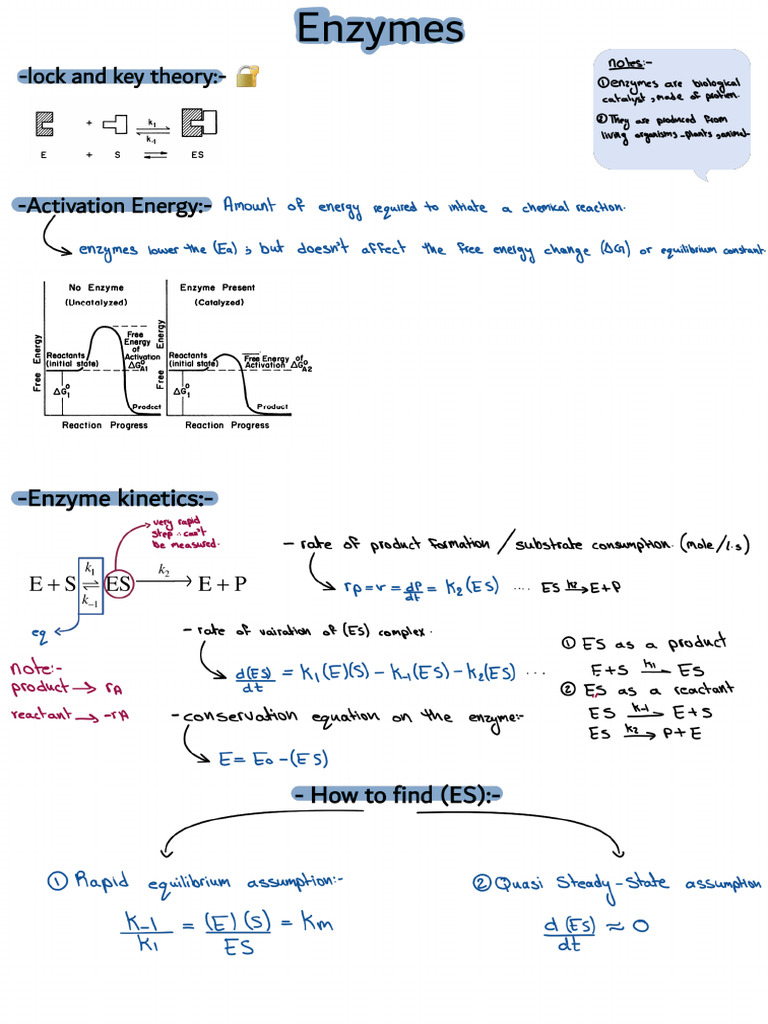 Enzymes
-lock and key theory:-
notes:-
① enzymes are biological
catalyst, made of protien.
② They are produced from
living organisms-plants, animal-
E + S k₁ ⇌ k₋₁ ES
E + S ⇌ ES
-Activation Energy:- Amount of energy required to intiate a chemical reaction.
enzymes lower the (Ea) ; but doesn't affect the free energy change (ΔG) or equilibrium constant
No Enzyme
(Uncatalyzed)
Free Energy
Reactants
(initial state)
Free
Energy
of
Activation
ΔG°A1
ΔG°1
Product
Reaction Progress
Enzyme Present
(Catalyzed)
Free Energy
Reactants
(initial state)
Free Energy of
Activation ΔG°A2
ΔG°1
Product
Reaction Progress
-Enzyme kinetics:-
very rapid
step ∴ can't
be measured.
E + S k₁ ⇌ k₋₁ ES k₂ → E + P
eq
note:-
product → rA
reactant → -rA
- rate of product formation / substrate consumption. (mole/l.s)
rp = v = dP/dt = K₂ (ES) .... ES k₂→ E+P
- rate of vairation of (ES) complex.
d(ES)/dt = K₁(E)(S) - K₋₁(ES) - K₂(ES) ...
① ES as a product
E+S k₁→ ES
② ES as a reactant
ES k-1→ E+S
ES k₂→ P+E
- conservation equation on the enzyme:-
E = E₀ - (ES)
- How to find (ES):-
① Rapid equilibrium assumption:-
K₋₁/K₁ = (E)(S)/ES = Km
② Quasi Steady-State assumption
d(ES)/dt ≈ 0